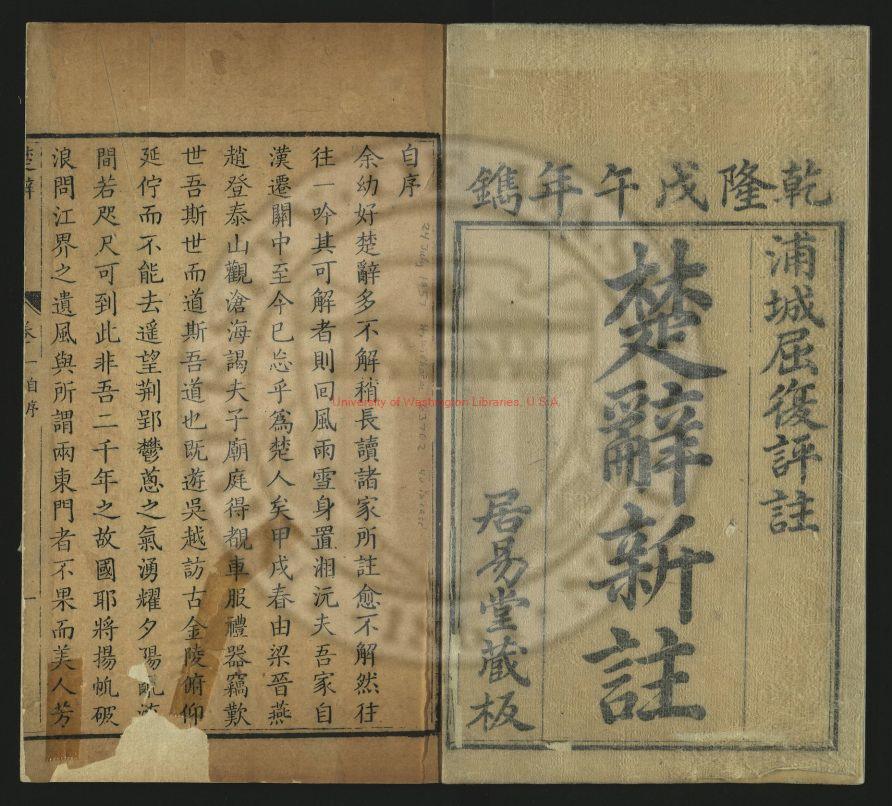 乾隆戊午年鐫
浦城屈復評註
楚辭新註
居易堂藏板
自序
余幼好楚辭多不解稍長讀諸家所註愈不解然往
往一吟其可解者則回風雨雪身置湘沅夫吾家自
漢遷關中至今已忘乎為楚人矣甲戌春由梁晉燕
趙登泰山觀滄海謁夫子廟庭得覩車服禮器竊歎
世吾斯世而道斯吾道也既遊吳越訪古金陵俯仰
延佇而不能去遥望荆郢鬱蔥之氣湧耀夕陽
間若咫尺可到此非吾二千年之故國耶將揚帆破
浪問江界之遺風與所謂兩東門者不果而美人芳
楚辭
卷一自序
一
University of Washington Libraries, U.S.A